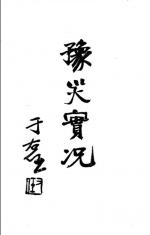 豫災實況
于右任